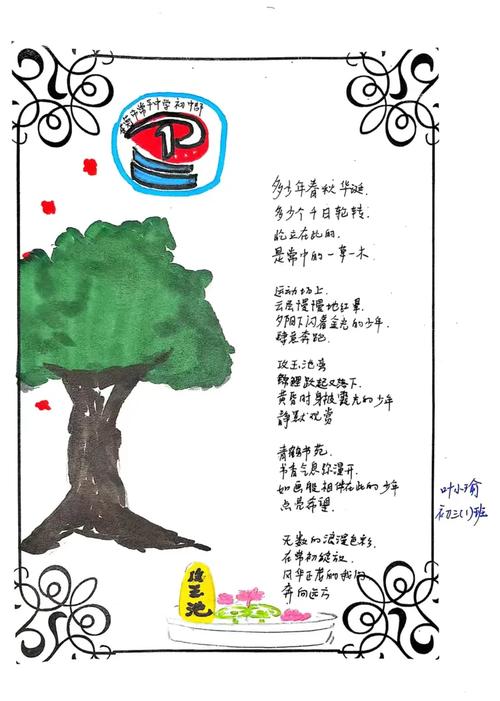 常平中学初中部
多少年春秋华诞.
多少个千日轮转.
屹立在此的.
是常中的一草一木
运动场上.
云层慢慢地红晕
夕阳下闪着金光的少年.
肆意奔跑.
攻玉池旁
锦鲤跃起又落下.
黄昏时身被霞光的少年
静默观赏
青鹤书苑.
书香气息弥漫开.
如画般相伴在此的少年
点是希望.
无数的浪漫色彩.
在常初绽放.
风华正茂的我们
奔向远方
叶小瑜
初三(1)班
攻玉池